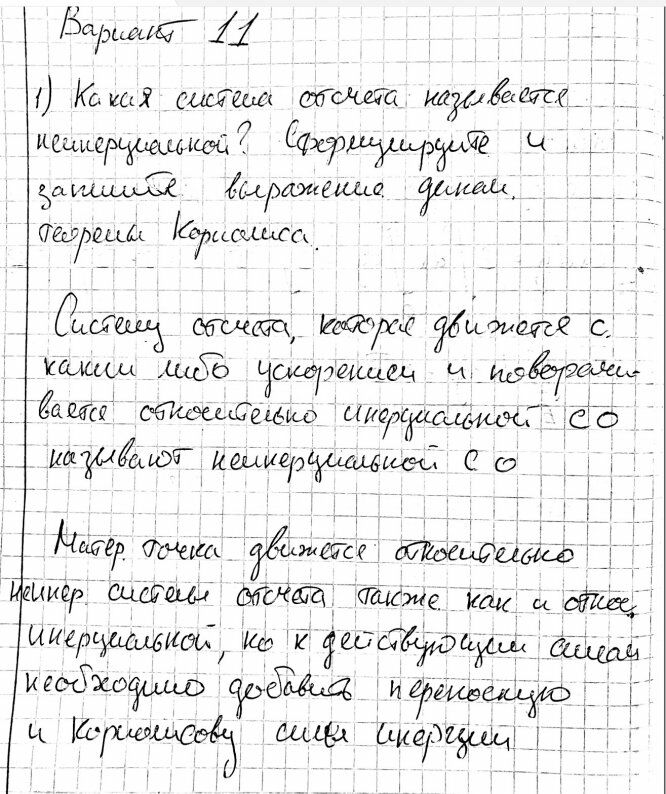 Вариант 11
1) Какая система отсчета называется
неинерциальной? Сформулируйте и
запишите выражение динам.
теоремы Кориолиса.
Систему отсчета, которая движется с
каким либо ускорением и поворачи-
вается относительно инерциальной СО
называют неинерциальной СО
Матер точка движется относительно
неинер. системы отсчета также как и относ.
инерциальной, но к действующим силам
необходимо добавить переносную
и Кориолисову силы инерции